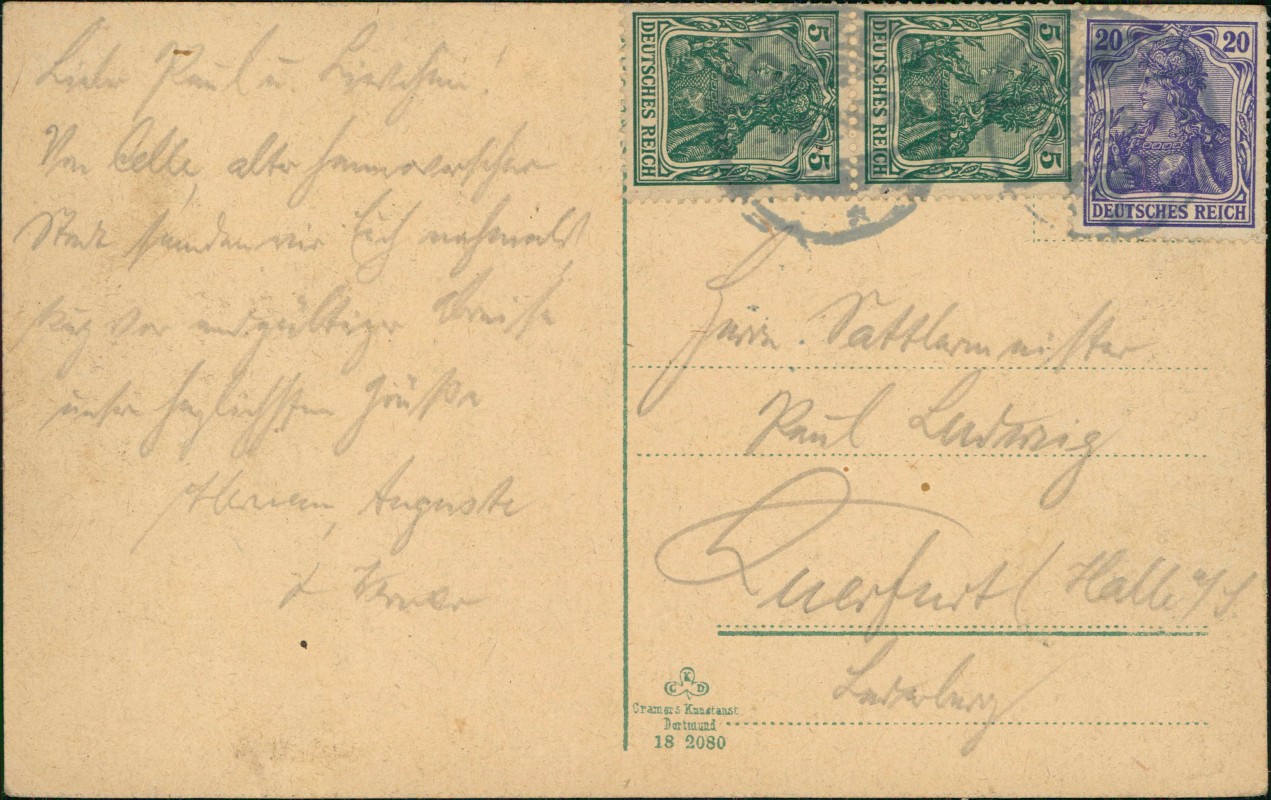 Liebe Paul u. Lieschen!
Von Celle, alter hannoverscher
Stadt senden wir Euch nochmals
kurz vor endgültiger Abreise
unsre herzlichsten Grüße
Auguste
DEUTSCHES REICH 5 5
DEUTSCHES REICH 5 5
20 20
DEUTSCHES REICH
Herrn Sattlermeister
Paul Ludwig
Querfurt (Halle a/S.
C K D
Cramers Kunstanst.
Dortmund
18 2080